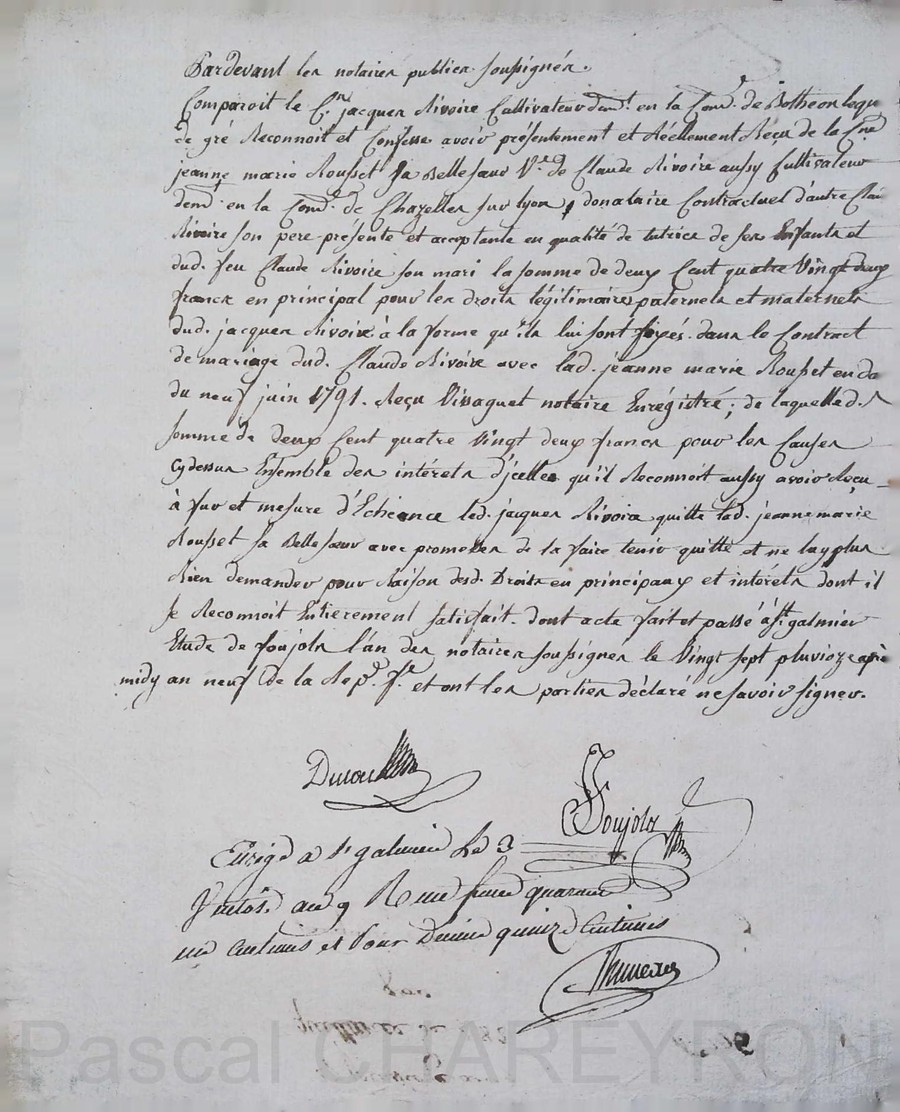 Pardevant les notaires publics soussignés.
Comparoit le Cn. jacques Rivoire Cultivateur demt. en la Comé. de Bothéon lequ
de gré Reconnoit et Confesse avoir présentement et Réellement Reçu de la Cne
jeanne marie Rousset sa Bellesœur Ve. de Claude Rivoire aussy Cultivateur
demt. en la Comé. de Chazelles sur lyon, donataire Contractuel d'autre Clau
Rivoire son pere présente et acceptante en qualité de tutrice de ses Enfants et
dud. feu Claude Rivoire son mari la somme de deux Cent quatre Vingt deux
francs en principal pour les droits légitimaires paternels et maternels
dud. jacques Rivoire à la forme qu'ils lui sont fixés dans le Contract
de mariage dud. Claude Rivoire avec lad. jeanne marie Rousset en da
du neuf juin 1791. Reçu Vissaguet notaire Enrégistré; de laquelle d.
somme de deux Cent quatre Vingt deux francs pour les Causes
cydessus Ensemble des intérets d'jcelle qu'il Reconnoit aussy avoir Reçu
à fur et mesure d'Echéance led. jacques Rivoire quitte lad. jeanne marie
Rousset sa Belle sœur avec promesse de la faire tenir quitte et ne lay plus
Rien demander pour Raison desd. Droits en principaux et intérets dont il
se Reconnoit Entierement satisfait. dont acte fait et passé à st. galmier
Etude de foujols l'un des notaires soussignés le Vingt sept pluvioze après
midy an neuf de la Rep. fe. et ont les parties déclaré ne savoir signer.
foujols
Enrigé a st galmier le 3
Ventôs. an 9 R une franc quarante
un centimes et Pour Décime quinze Centimes
Pascal CHAREYRON